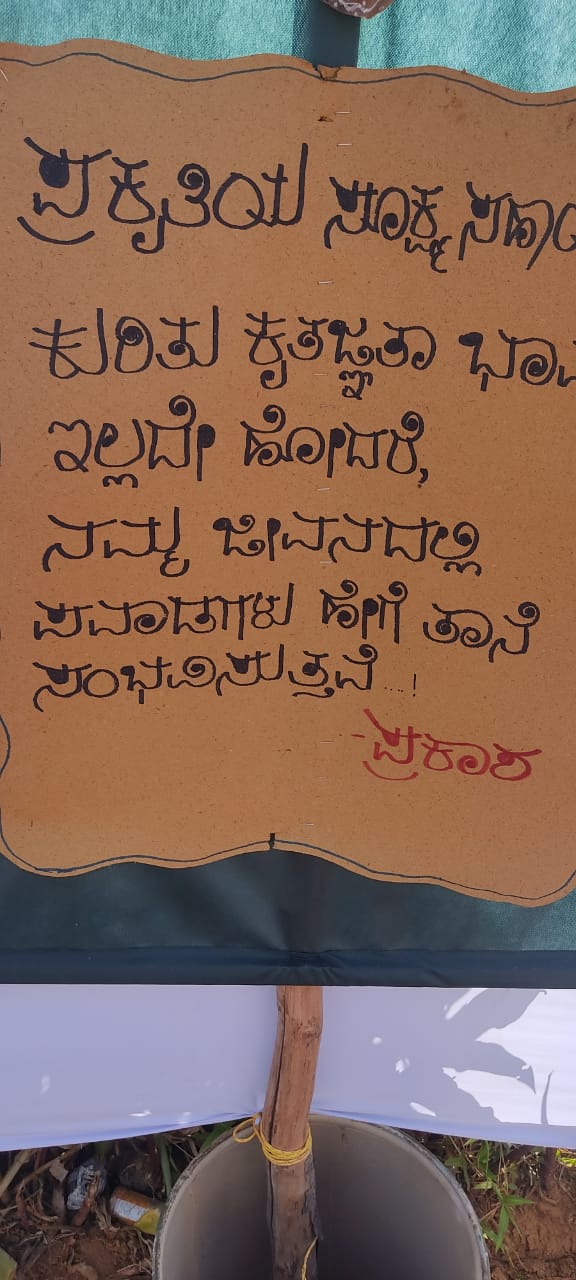 ಪ್ರಕೃತಿಯ ಸೂಕ್ಷ್ಮ
ಕುರಿತು ಕೃತಜ್ಞತಾ
ಇಲ್ಲದೇ ಹೋದರೆ,
ನಮ್ಮ ಜೀವನದಲ್ಲಿ
ಪವಾಡಗಳು ಹೇಗೆ ತಾನೆ
ಸಂಭವಿಸುತ್ತವೆ...!
-ಪ್ರಕಾಶ